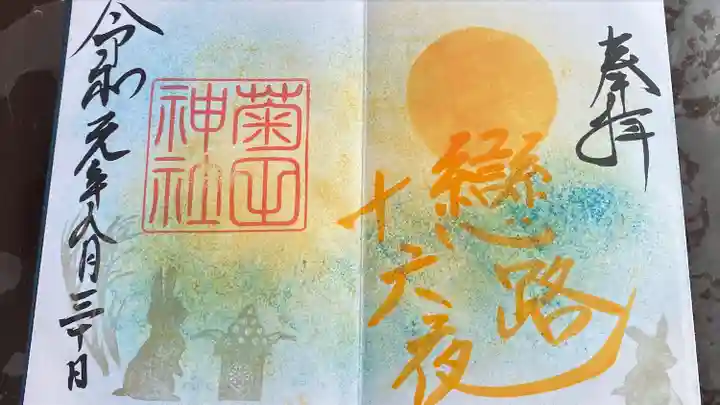 奉拝
戀路
十六夜
菊田
神社
令和元年八月三十日